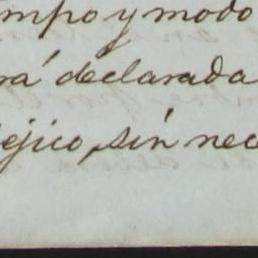 mpo y modo
rá declarada
ejico, sin nec